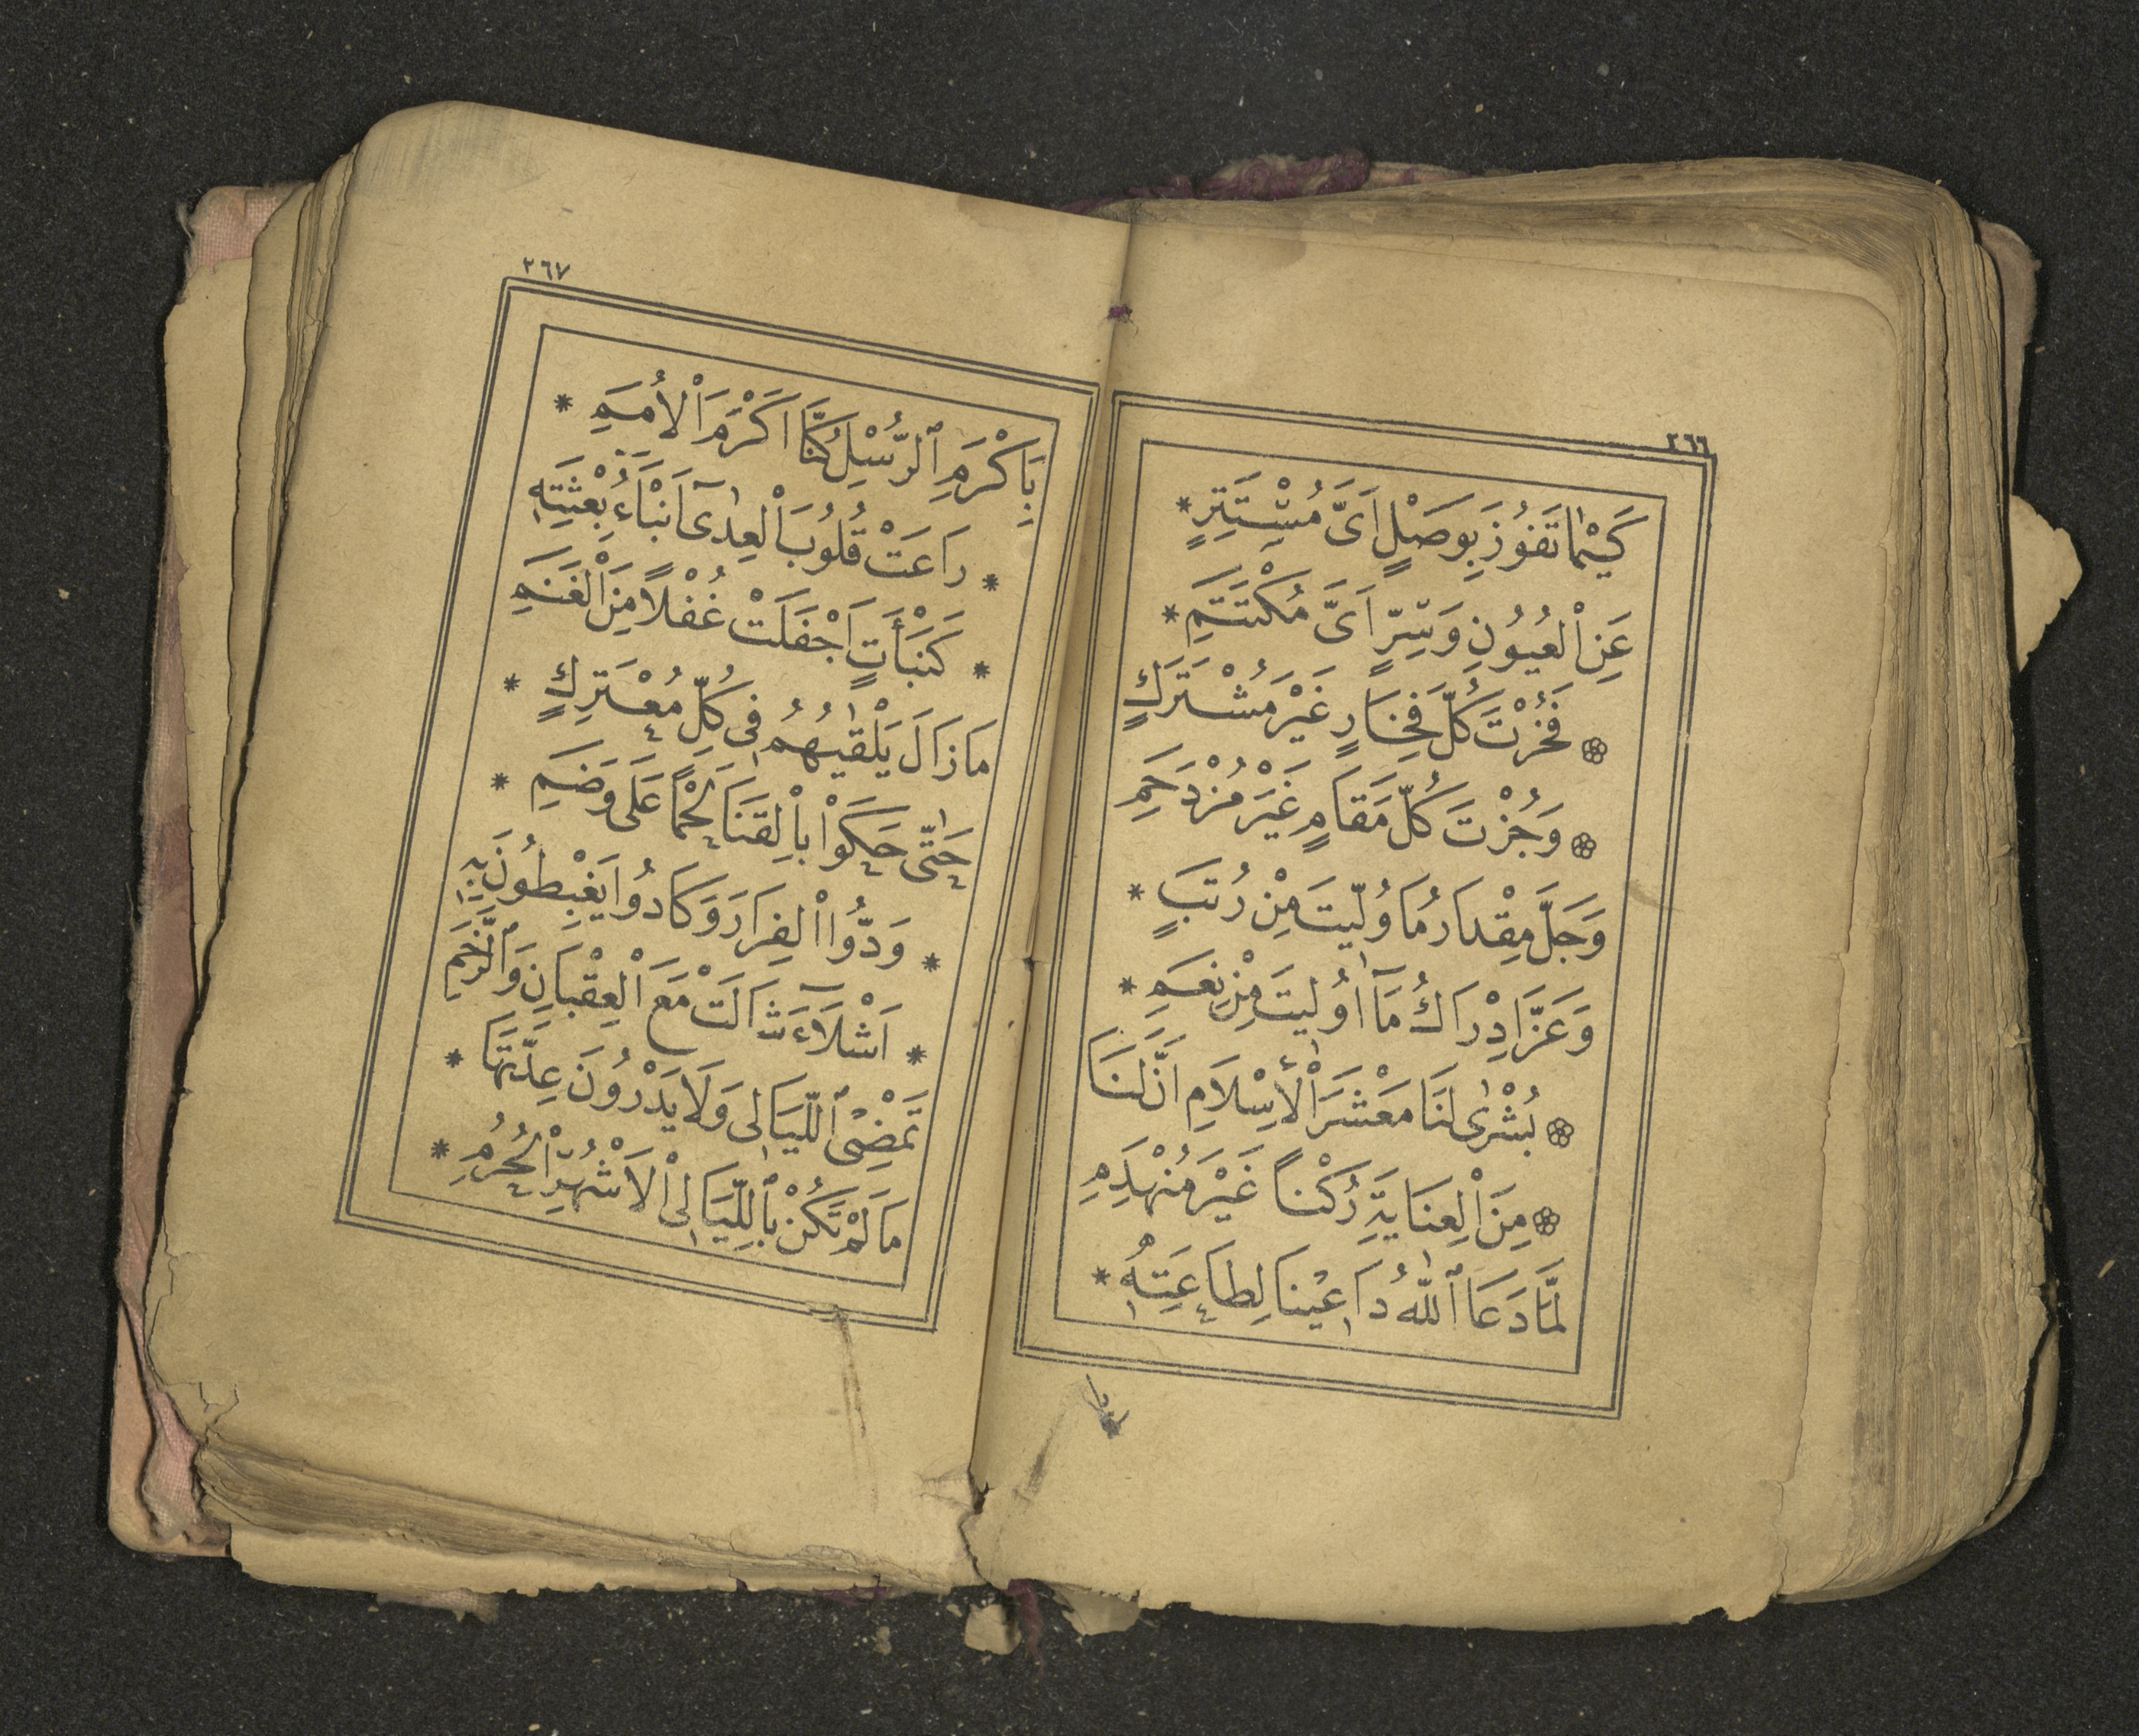 ٢٦٦
كَيْمَا تَفُوزَ بِوَصْلٍ اَىَّ مُسْتَتِرٍ *
عَنِ الْعُيُونِ وَسِرٍّ اَىَّ مُكْتَتَمِ *
فَحُزْتَ كُلَّ فَخَارٍ غَيْرَ مُشْتَرَكٍ
وَجُزْتَ كُلَّ مَقَامٍ غَيْرَ مُزْدَحَمِ
وَجَلَّ مِقْدَارُ مَا وُلِّيتَ مِنْ رُتَبٍ *
وَعَزَّ اِدْرَاكُ مَآ اُولِيتَ مِنْ نِعَمِ *
بُشْرٰى لَنَا مَعْشَرَ الْأِسْلَامِ اَنَّ لَنَا
مِنَ الْعِنَايَةِ رُكْناً غَيْرَ مُنْهَدِمِ
لَمَّا دَعَا ٱللّٰهُ دَاعِينَا لِطَاعَتِهِ *
٢٦٧
بِاَكْرَمِ ٱلرُّسْلِ كُنَّا اَكْرَمَ الْاُمَمِ *
* رَاعَتْ قُلُوبَ الْعِدٰىٓ اَنْبَاءُ بِعْثَتِهِ
* كَنَبْأَتٍ اَجْفَلَتْ غُفْلاً مِنَ الْغَنَمِ
مَا زَالَ يَلْقٰيهُمُ فِى كُلِّ مُعْتَرِكٍ *
حَتّٰى حَكَوْا بِالْقَنَا لَحْماً عَلَى وَضَمِ *
* وَدُّوا الْفِرَارَ وَكَادُوا يَغْبِطُونَ بِهِ
* اَشْلَآءَ شَالَتْ مَعَ الْعِقْبَانِ وَٱلرَّخَمِ
تَمْضِى ٱللَّيَالِى وَلَا يَدْرُونَ عِدَّتَهَا *
مَا لَمْ تَكُنْ بِٱللَّيَالِى الْاَشْهُرِ الْحُرُمِ *